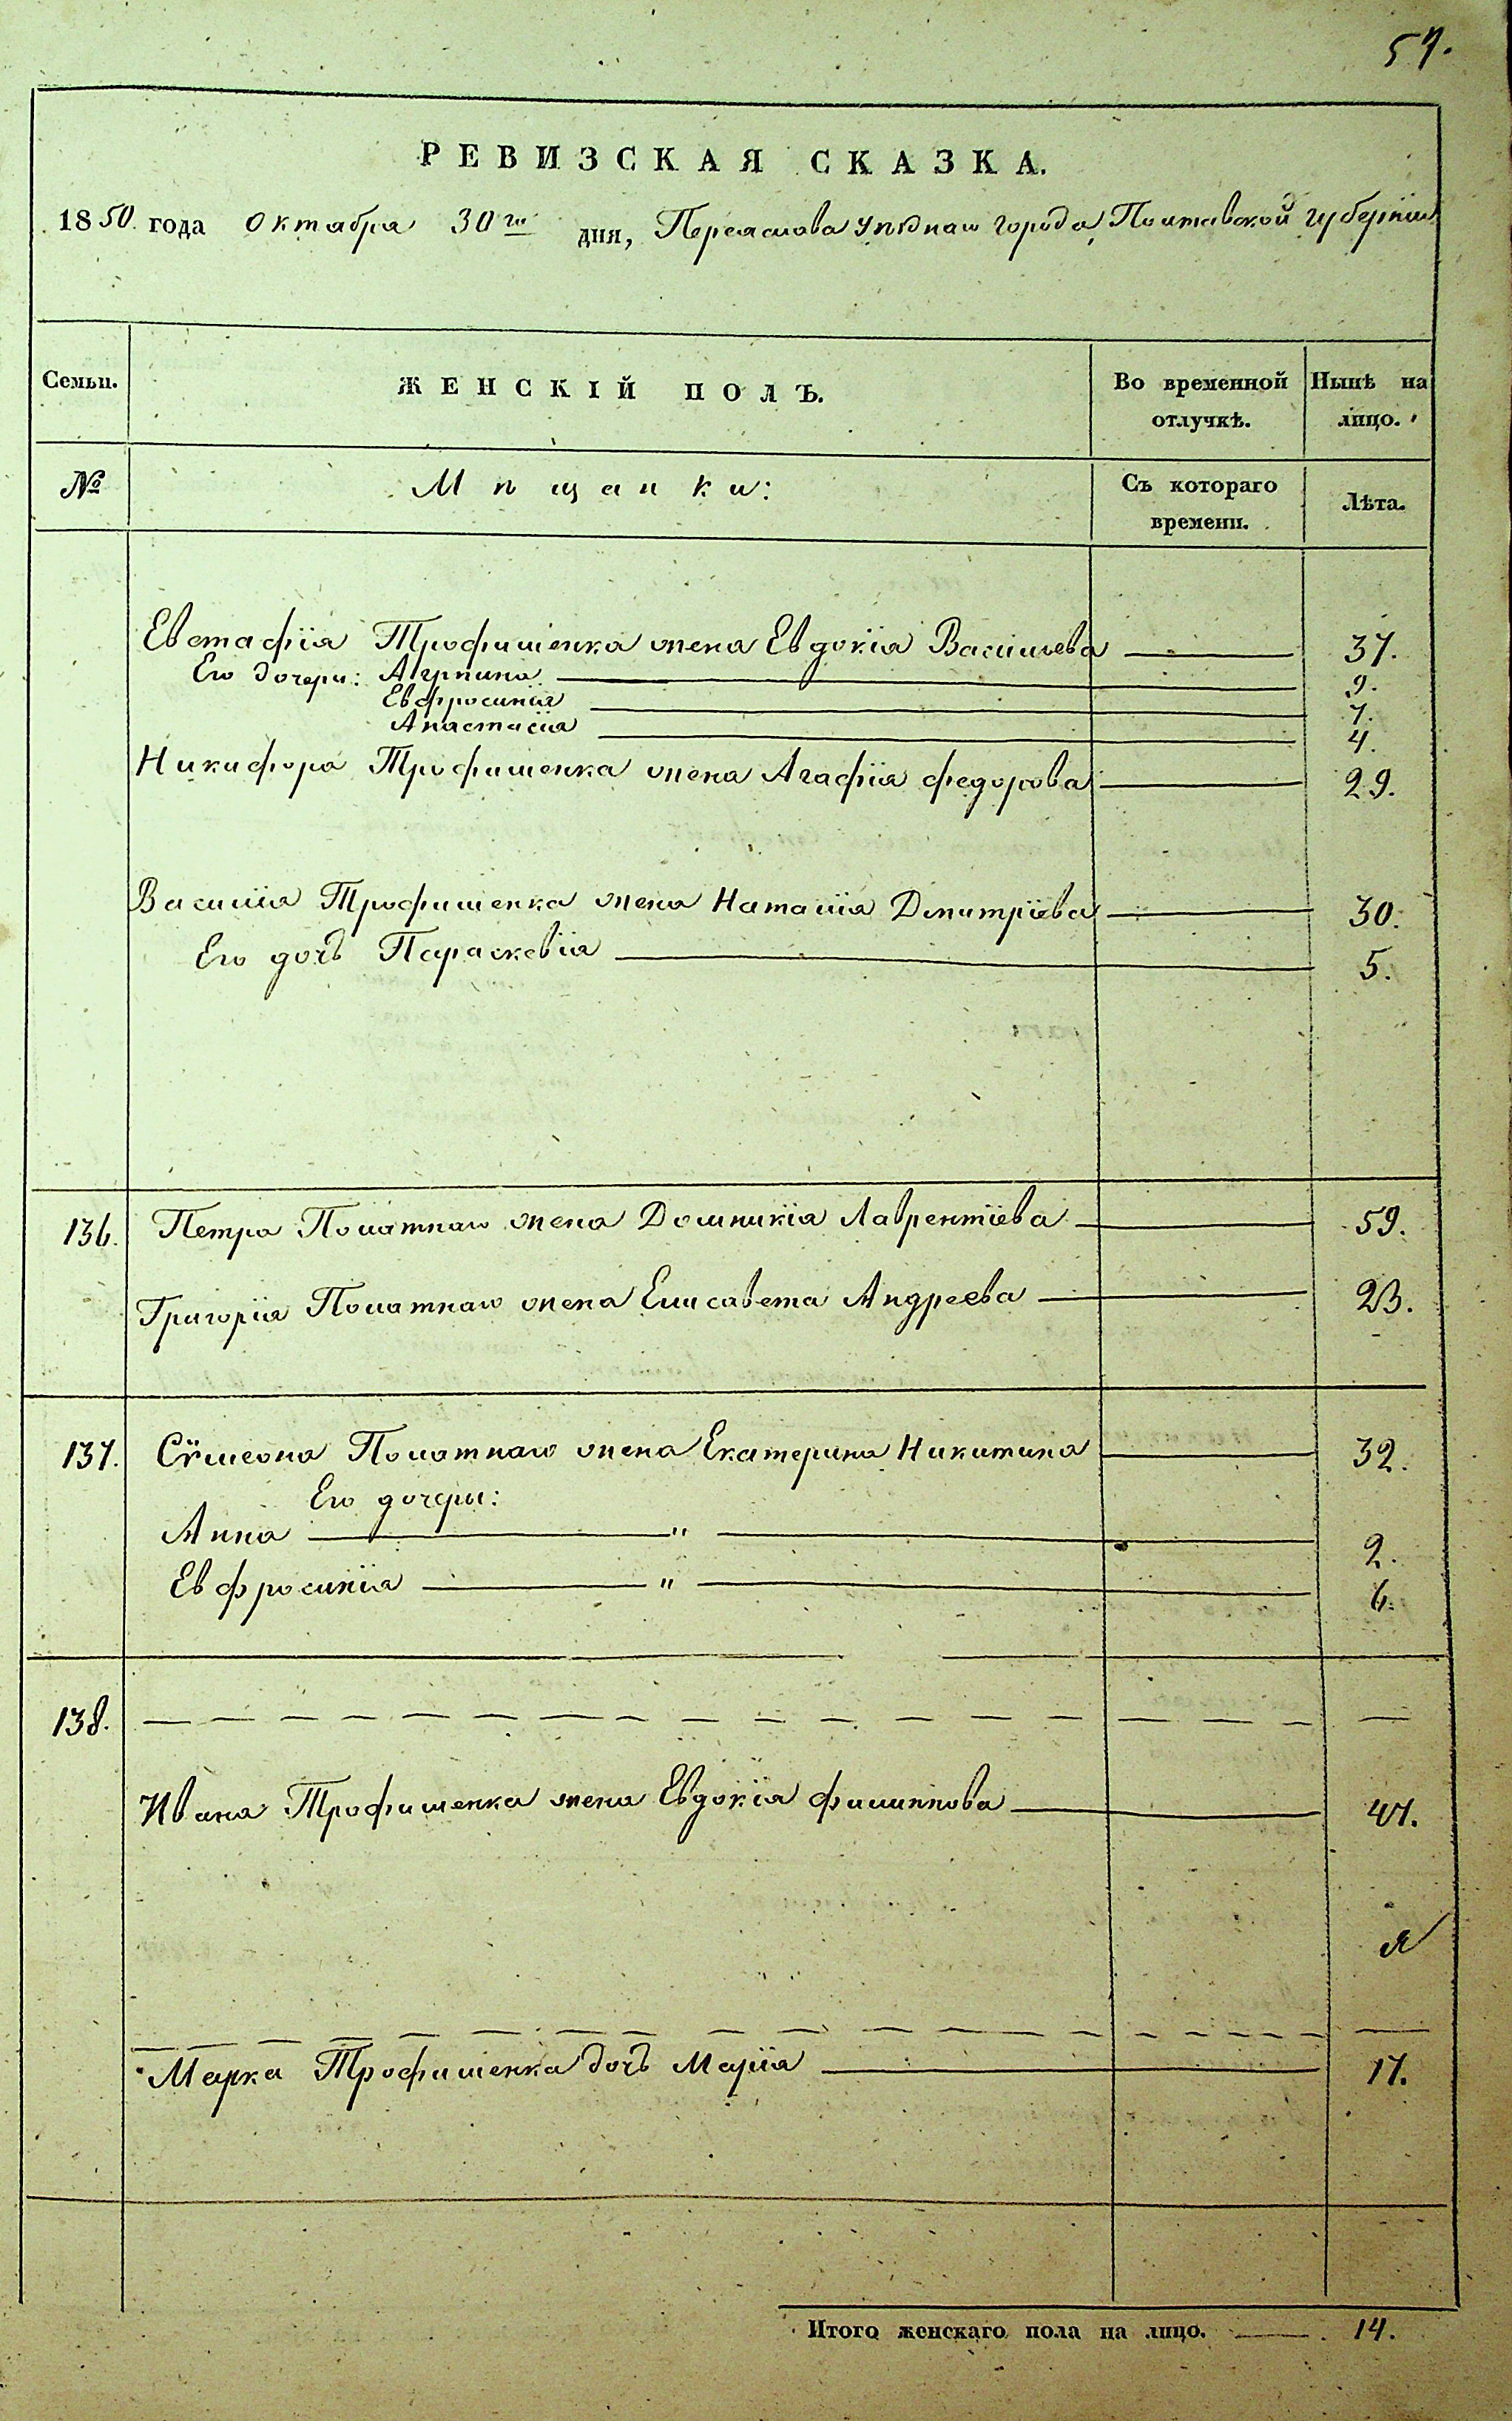 57.
РЕВИЗСКАЯ СКАЗКА.
1850. года Октября 30го дня, Переяслова уѣднаго города, Полтавской губерніи
Семьи. ЖЕНСКІЙ ПОЛЪ. Во временной отлучкѣ. Нынѣ на лицо.
№ Мѣщанки: Съ котораго времени. Лѣта.
Евстафія Трофименка жена Евдокія Васильева 37.
Его дочери: Агрпина 9.
Евфросинія 7.
Анастасія 4.
Никифора Трофименка жена Агафія Федорова 29.
Василія Трофименка жена Наталія Дмитріева 30.
Его дочь Параскевія 5.
136. Петра Полатнаго жена Домникія Лаврентіева 59.
Григорія Полатнаго жена Елисавета Андреева 23.
137. Сѵмеона Полатнаго жена Екатерина Никитина 32.
Его дочери:
Анна " 2.
Евфросинія " 6.
138.
Ивана Трофименка жена Евдокія Филиппова 47.
Марка Трофименка дочь Марія 17.
Итого женскаго пола на лицо. 14.